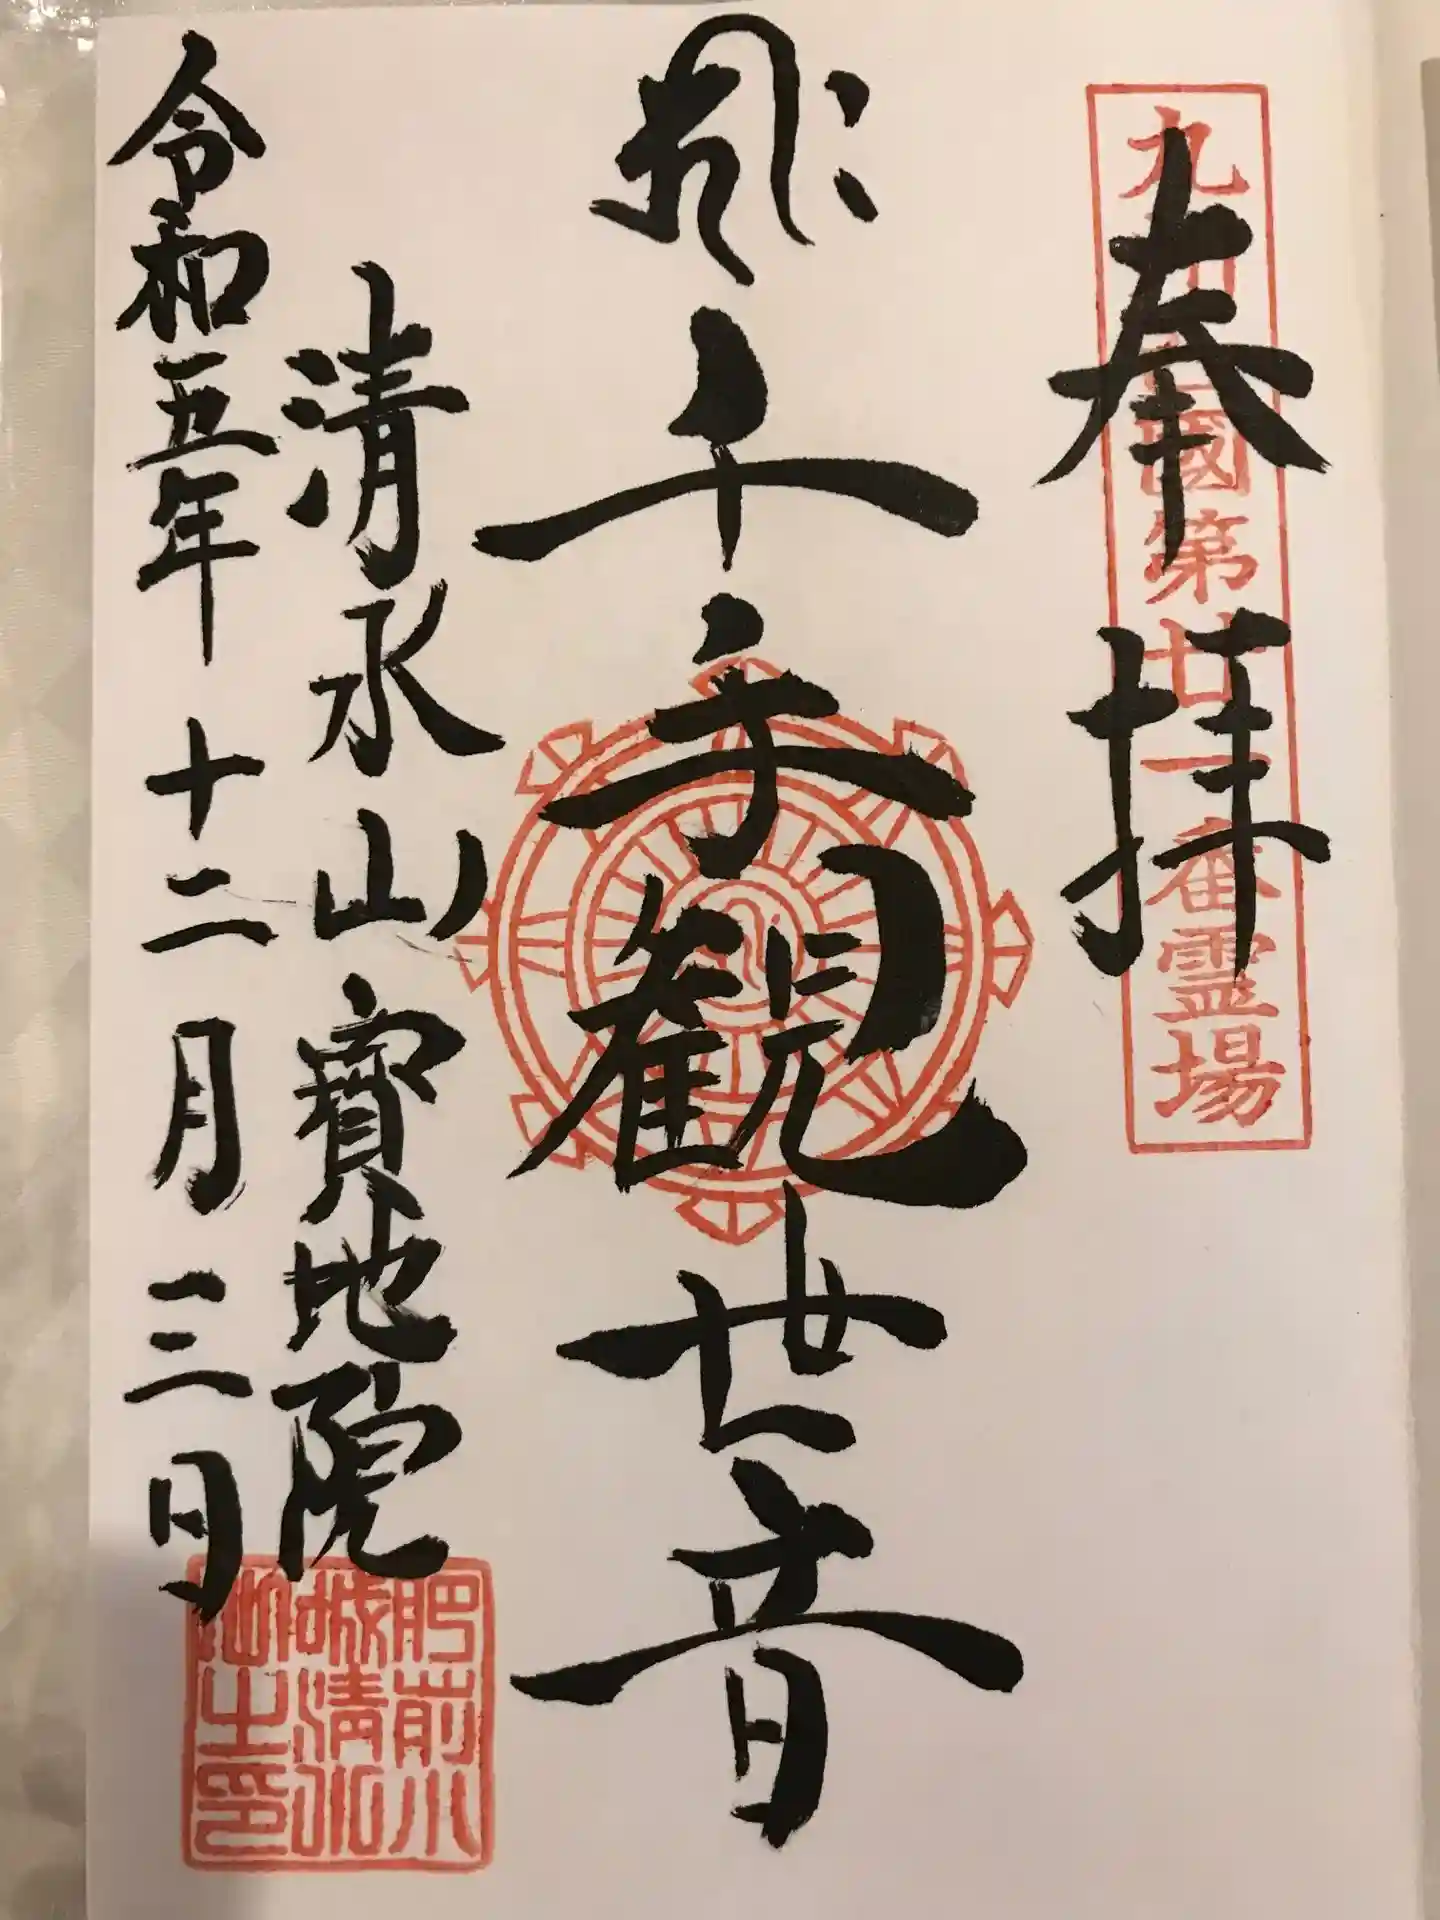 奉拝
九州西國第廿一番霊場
千手観世音
清水山寳地院
令和五年十二月三日
肥前小
城清水
山之印